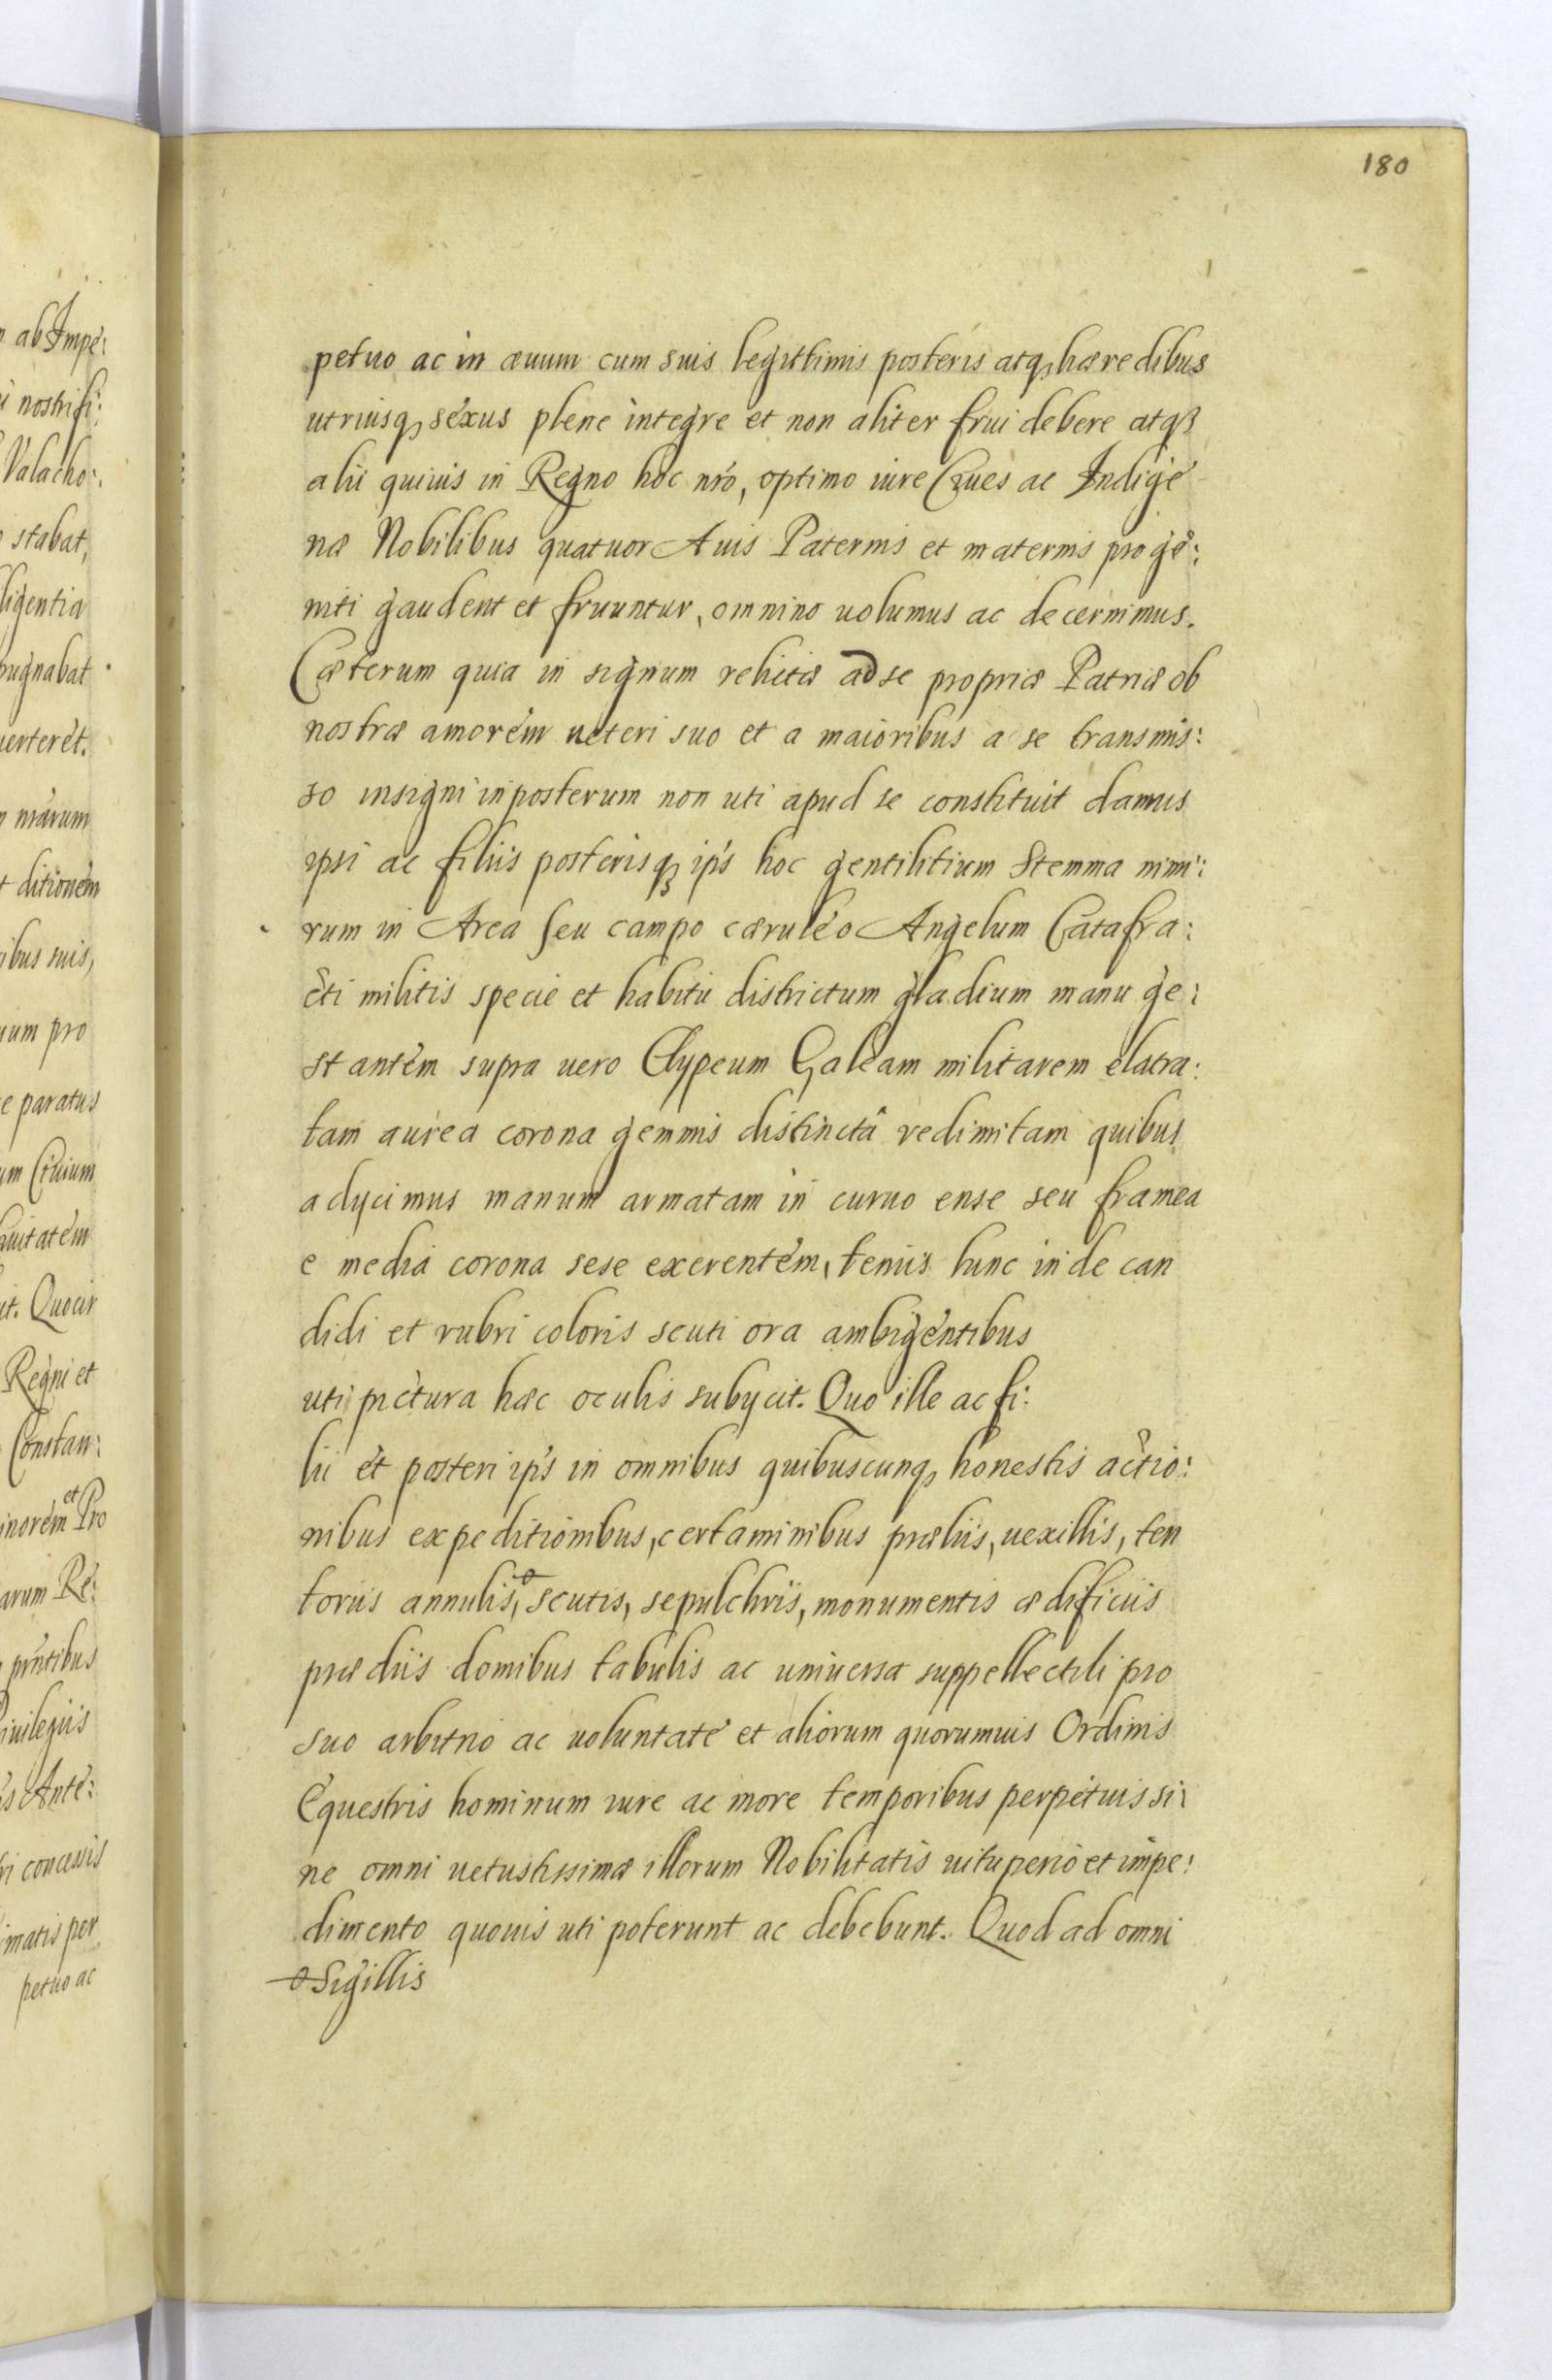 180
petuo ac in æuum cum suis legittimis posteris atq, hæredibus
utriusq, sexus plene integre et non aliter frui debere atq,
alii quiuis in Regno hoc nro, optimo iure Ciues ac Indige
næ Nobilibus quatuor Auis Paternis et maternis proge:
niti gaudent et fruuntur, omnino uolumus ac decernimus.
Cæterum quia in signum relictæ ad se propriæ Patriæ ob
nostræ amorem ueteri suo et a maioribus a se transmis:
so insigni inposterum non uti apud se constituit damus
ipsi ac filiis posterisq, ips hoc gentilitium Stemma nimi:
rum in Area seu campo cæruleo Angelum Catafra:
cti militis specie et habitu districtum gladium manu ge:
stantem supra uero Clypeum Galeam militarem clatra:
tam aurea corona gemmis distinctâ redimitam quibus
adycimus manum armatam in curuo ense seu framea
e media corona sese exerentem, teniis hinc inde can
didi et rubri coloris scuti ora ambigentibus
uti pictura hæc oculis subycit. Quo ille ac fi:
lii et posteri ips in omnibus quibuscunq, honestis actio:
nibus expeditionibus, certaminibus præliis, uexillis, ten
toriis annulis, scutis, sepulchris, monumentis ædificiis
prædiis domibus tabulis ac uniuersa suppellectili pro
suo arbitrio ac uoluntate et aliorum quorumuis Ordinis
Equestris hominum iure ac more temporibus perpetuis si:
ne omni uetustissimæ illorum Nobilitatis uituperio et impe:
dimento quouis uti poterunt ac debebunt. Quod ad omni
Sigillis
ab Impe:
nostri fi:
Valacho:
stabat,
ligentia
pugnabat
uerteret.
nrarum
ditionem
ibus suis,
ium pro
e paratus
um Ciuium
uitatem
it. Quocir
Regni et
Constan:
inorem et Pro
arum Re:
prntibus
iuilegiis
is Ante:
ri concessis
imatis per
petuo ac